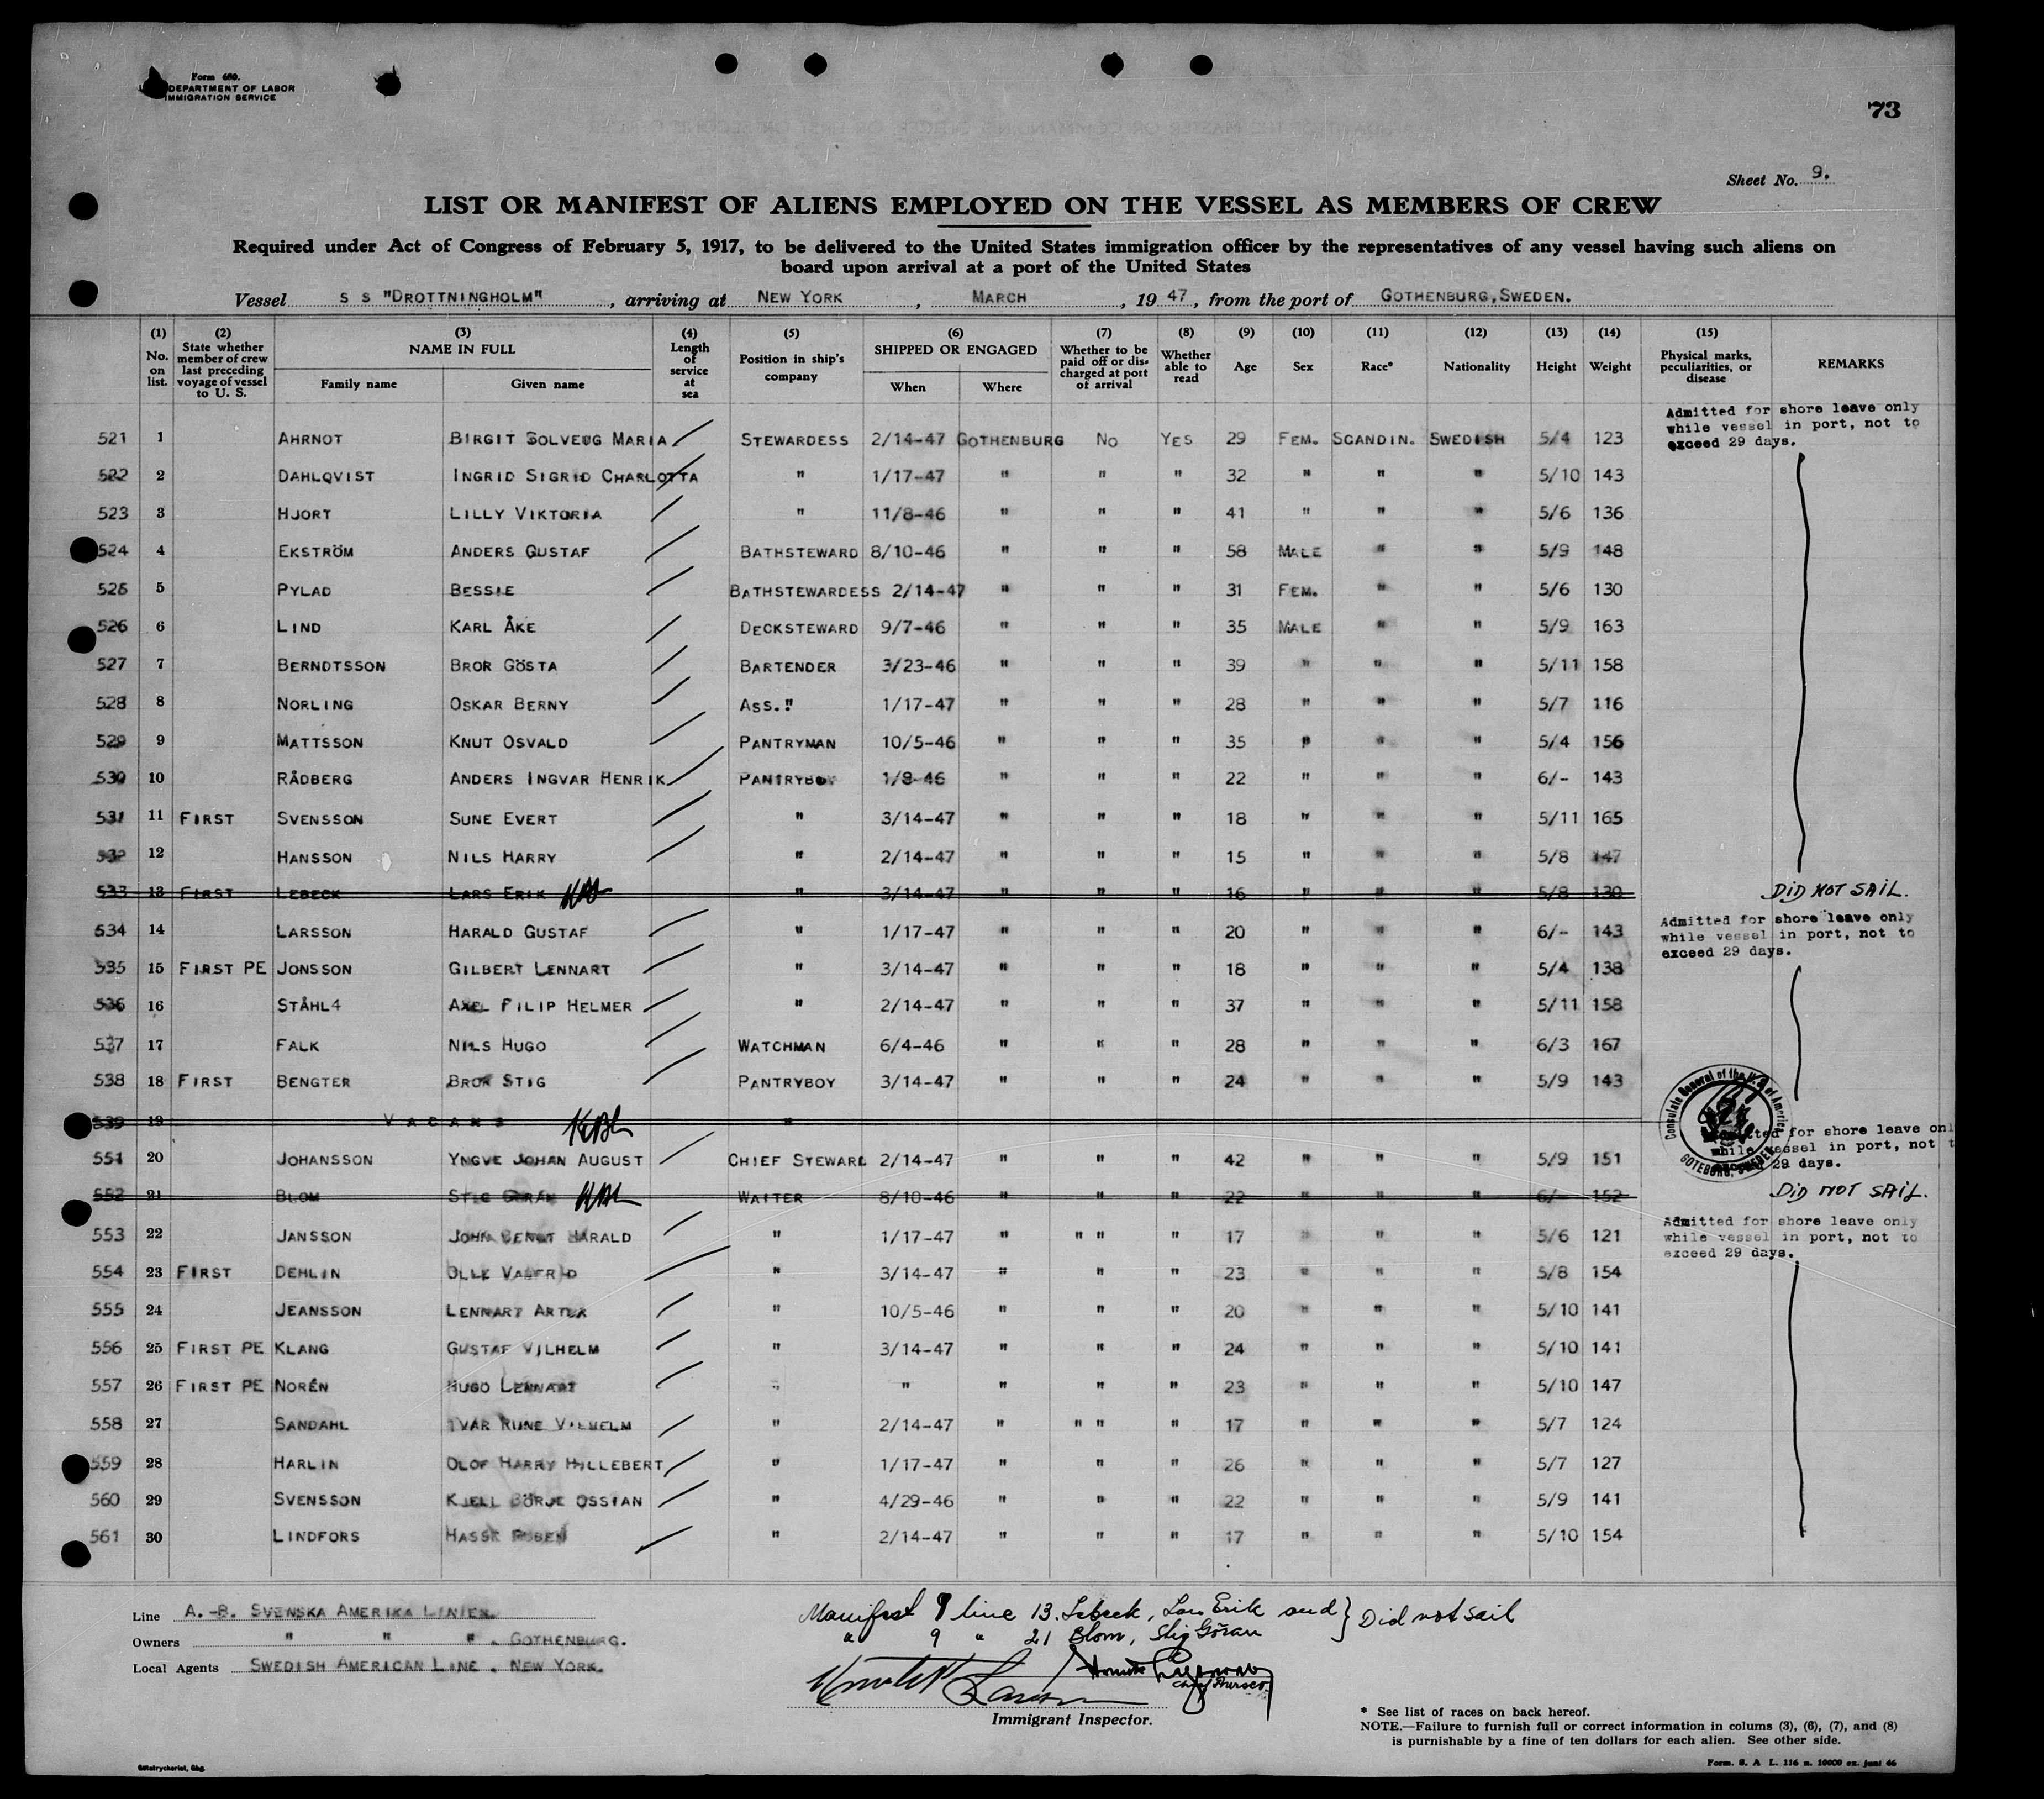 Form 680.
DEPARTMENT OF LABOR
IMMIGRATION SERVICE
73
Sheet No. 9.
LIST OR MANIFEST OF ALIENS EMPLOYED ON THE VESSEL AS MEMBERS OF CREW
Required under Act of Congress of February 5, 1917, to be delivered to the United States immigration officer by the representatives of any vessel having such aliens on
board upon arrival at a port of the United States
Vessel S S "DROTTNINGHOLM", arriving at NEW YORK, MARCH, 1947, from the port of GOTHENBURG, SWEDEN.
(1) No. on list. (2) State whether member of crew last preceding voyage of vessel to U. S. (3) NAME IN FULL Family name Given name (4) Length of service at sea (5) Position in ship's company (6) SHIPPED OR ENGAGED When Where (7) Whether to be paid off or discharged at port of arrival (8) Whether able to read (9) Age (10) Sex (11) Race* (12) Nationality (13) Height (14) Weight (15) Physical marks, peculiarities, or disease REMARKS
Admitted for shore leave only
while vessel in port, not to
exceed 29 days.
521 1 AHRNOT BIRGIT SOLVEUG MARIA STEWARDESS 2/14-47 GOTHENBURG NO YES 29 FEM. SCANDIN. SWEDISH 5/4 123
522 2 DAHLQVIST INGRID SIGRID CHARLOTTA " 1/17-47 " " " 32 " " " 5/10 143
523 3 HJORT LILLY VIKTORIA " 11/8-46 " " " 41 " " " 5/6 136
524 4 EKSTRÖM ANDERS GUSTAF BATHSTEWARD 8/10-46 " " " 58 MALE " " 5/9 148
525 5 PYLAD BESSIE BATHSTEWARDESS 2/14-47 " " " 31 FEM. " " 5/6 130
526 6 LIND KARL ÅKE DECKSTEWARD 9/7-46 " " " 35 MALE " " 5/9 163
527 7 BERNDTSSON BROR GÖSTA BARTENDER 3/23-46 " " " 39 " " " 5/11 158
528 8 NORLING OSKAR BERNY ASS. " 1/17-47 " " " 28 " " " 5/7 116
529 9 MATTSSON KNUT OSVALD PANTRYMAN 10/5-46 " " " 35 " " " 5/4 156
530 10 RÅDBERG ANDERS INGVAR HENRIK PANTRYBOY 1/8-46 " " " 22 " " " 6/- 143
531 11 FIRST SVENSSON SUNE EVERT " 3/14-47 " " " 18 " " " 5/11 165
532 12 HANSSON NILS HARRY " 2/14-47 " " " 15 " " " 5/8 147
533 13 FIRST LEBECK LARS ERIK " 3/14-47 " " " 16 " " " 5/8 130 DID NOT SAIL.
Admitted for shore leave only
while vessel in port, not to
exceed 29 days.
534 14 LARSSON HARALD GUSTAF " 1/17-47 " " " 20 " " " 6/- 143
535 15 FIRST PE JONSSON GILBERT LENNART " 3/14-47 " " " 18 " " " 5/4 138
536 16 STÅHL4 AXEL FILIP HELMER " 2/14-47 " " " 37 " " " 5/11 158
537 17 FALK NILS HUGO WATCHMAN 6/4-46 " " " 28 " " " 6/3 167
538 18 FIRST BENGTER BROR STIG PANTRYBOY 3/14-47 " " " 24 " " " 5/9 143
Consulate General of the U.S. of America
GÖTEBORG, SWEDEN
539 19 VACANS "
Admitted for shore leave onl
while vessel in port, not t
29 days.
551 20 JOHANSSON YNGVE JOHAN AUGUST CHIEF STEWARD 2/14-47 " " " 42 " " " 5/9 151
552 21 BLOM STIG GÖRAN WAITER 8/10-46 " " " 22 " " " 6/- 152 DID NOT SAIL.
Admitted for shore leave only
while vessel in port, not to
exceed 29 days.
553 22 JANSSON JOHN BENGT HARALD " 1/17-47 " " " " 17 " " " 5/6 121
554 23 FIRST DEHLIN OLLE VALFRID " 3/14-47 " " " 23 " " " 5/8 154
555 24 JEANSSON LENNART " 10/5-46 " " " 20 " " " 5/10 141
556 25 FIRST PE KLANG GUSTAF VILHELM " 3/14-47 " " " 24 " " " 5/10 141
557 26 FIRST PE NORÉN HUGO LENNART " " " " " 23 " " " 5/10 147
558 27 SANDAHL IVAR RUNE VILHELM " 2/14-47 " " " " 17 " " " 5/7 124
559 28 HARLIN OLOF HARRY HILLEBERT " 1/17-47 " " " 26 " " " 5/7 127
560 29 SVENSSON KJELL BÖRJE OSSIAN " 4/29-46 " " " 22 " " " 5/9 141
561 30 LINDFORS HASSE RUBEN " 2/14-47 " " " 17 " " " 5/10 154
Line A.-B. SVENSKA AMERIKA LINIEN.
Owners " " " . GOTHENBURG.
Local Agents SWEDISH AMERICAN LINE. NEW YORK.
Manifest 9 line 13. Lebeck, Lars Erik and } Did not sail
" 9 " 21 Blom, Stig Göran
Chief Purser
Immigrant Inspector.
* See list of races on back hereof.
NOTE.—Failure to furnish full or correct information in colums (3), (6), (7), and (8)
is purnishable by a fine of ten dollars for each alien. See other side.
Götatryckeriet, Gbg.
Form. S. A. L. 116 n. 10000 ex. juni 46